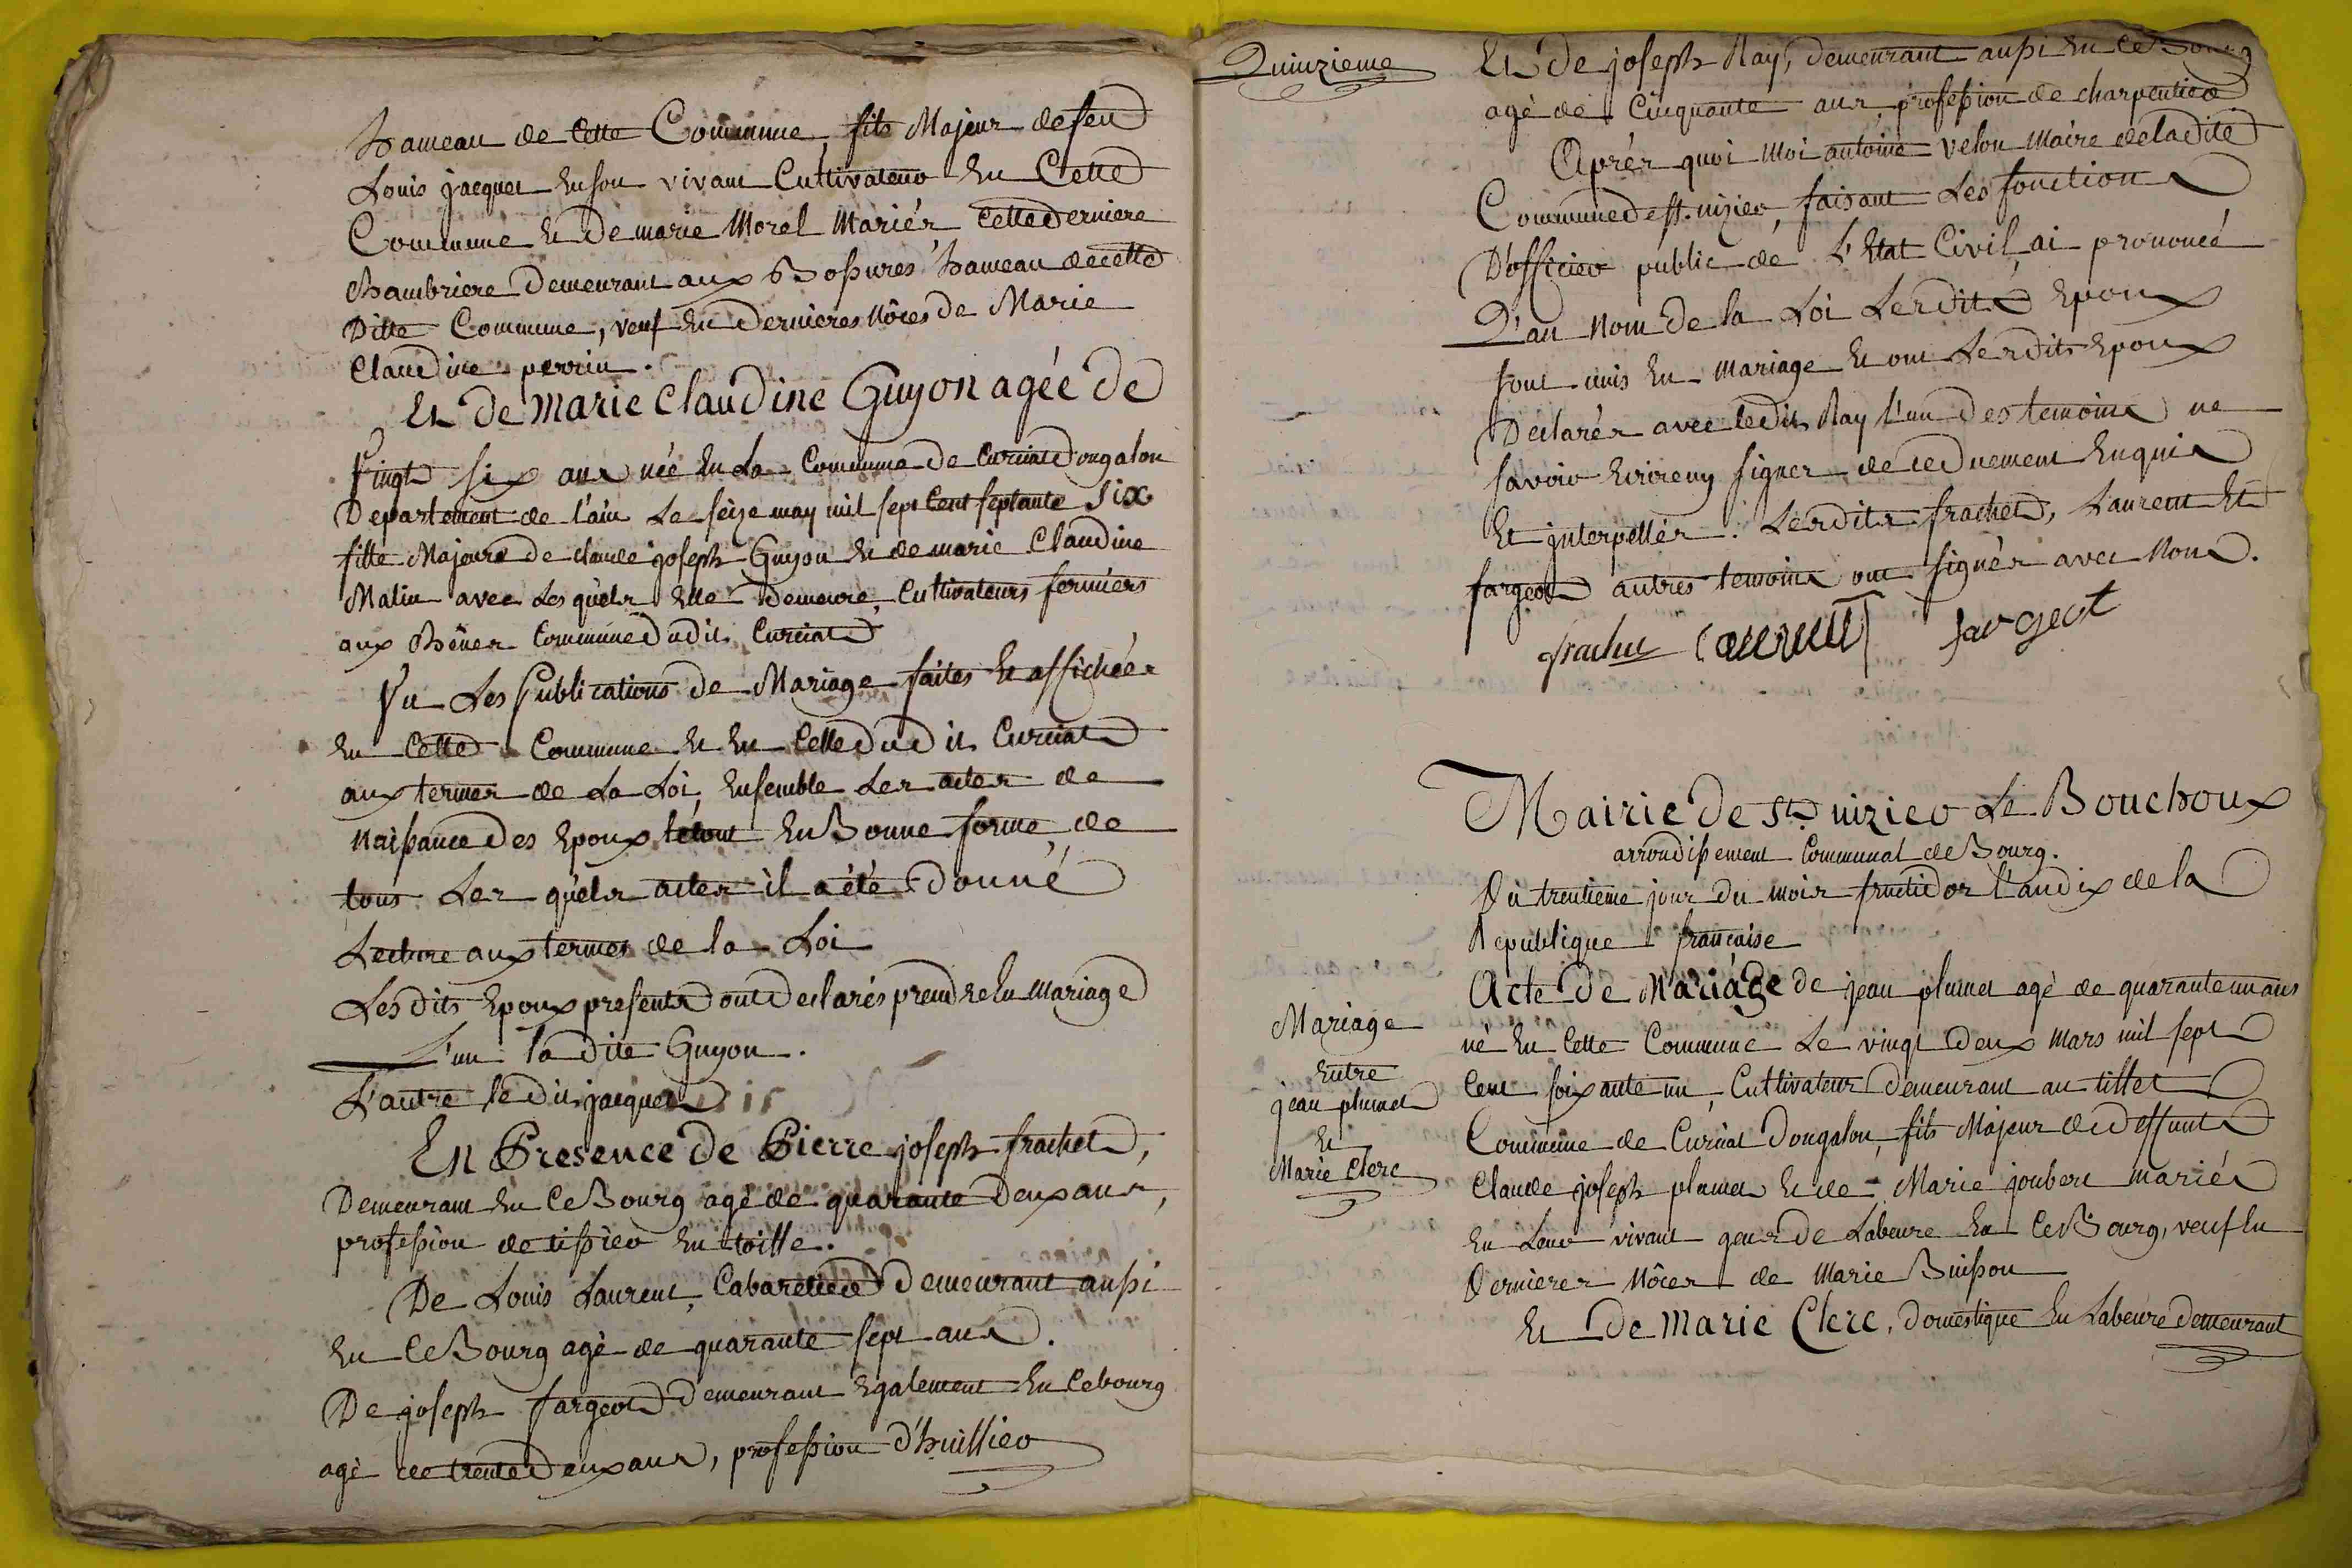 hameau de Cette Commune, fils Majeur defeu
Louis jacquet En son vivant Cultivateur En Cette
Commune Et De marie Morel Mariés Cette derniere
Chambriere Demeurant aux Bossures hameau de cette
Ditte Commune, veuf En Dernieres Nôces de Marie
Claudine perrin.
Et De Marie Claudine Guyon agée De
Vingt Six ans née En La Commune De Curciat Dongalon
Departement de l'ain Le seize may mil sept Cent septante Six
fille Majeure De claude joseph Guyon Et de marie Claudine
Malin avec Lesquèls Elle Demeure, Cultivateurs fermiers
aux Chênes Commune Dudit Curciat
Vu Les Publications de Mariage faites Et affichées
En Cette Commune Et En Celle Dudit Curciat
aux termes de La Loi, Ensemble Les actes de
Naissance Des Epoux le tout En Bonne forme, de
tous Les quèls actes il a été Donné
Lecture aux termes de la Loi
Lesdits Epoux presents ont Declarés prendre En Mariage
L'un la dite Guyon.
L'autre le dit jacquet
En Presence De Pierre joseph frachet,
Demeurant En Ce Bourg agé de quarante Deux ans,
profession de tissier En toille.
De Louis Laurent, Cabaretier Demeurant aussi
En Ce Bourg agè de quarante sept ans.
De joseph fargeot Demeurant Egalement En Cebourg
agè de trente Deux ans, profession D'huillier
Quinzieme
Et De joseph Ray, Demeurant aussi En Ce Bourg
agè de Cinquante ans, profession de charpentier
Après quoi Moi antoine velon Maire deladite
Commune de st. nizier, faisant Les fonctions
D'officier public de L'Etat Civil, ai prononcé
Qu'au Nom De la Loi Lesdits Epoux
sont unis En Mariage Et ont Lesdits Epoux
Déclarés avec ledit Ray l'un Des temoins ne
savoir Ecrire ny signer de ce Duement Enquis
Et jnterpellés. Lesdits frachet, Laurent Et
fargeot autres temoins ont signés avec Nous.
frachet Laurent fargeot
Mairie De St. nizier Le Bouchoux
arrondissement Communal de Bourg.
Du trentieme jour Du mois fructidor l'an dix de la
Republique française
Mariage
Entre
jean plumet
Et
Marie Clerc
Acte De Mariage De jean plumet agè de quarante un ans
né En Cette Commune Le vingt Deux Mars mil sept
Cent soixante un, Cultivateur Demeurant au tillet
Commune de Curciat Dongalon, fils Majeur de deffunt
Claude joseph plumet Et de Marie joubert mariés
En Leur vivant gens De Labeure En Ce Bourg, veuf En
Dernieres Nôces de Marie Buisson
Et De Marie Clerc, Domestique En Labeure Demeurant